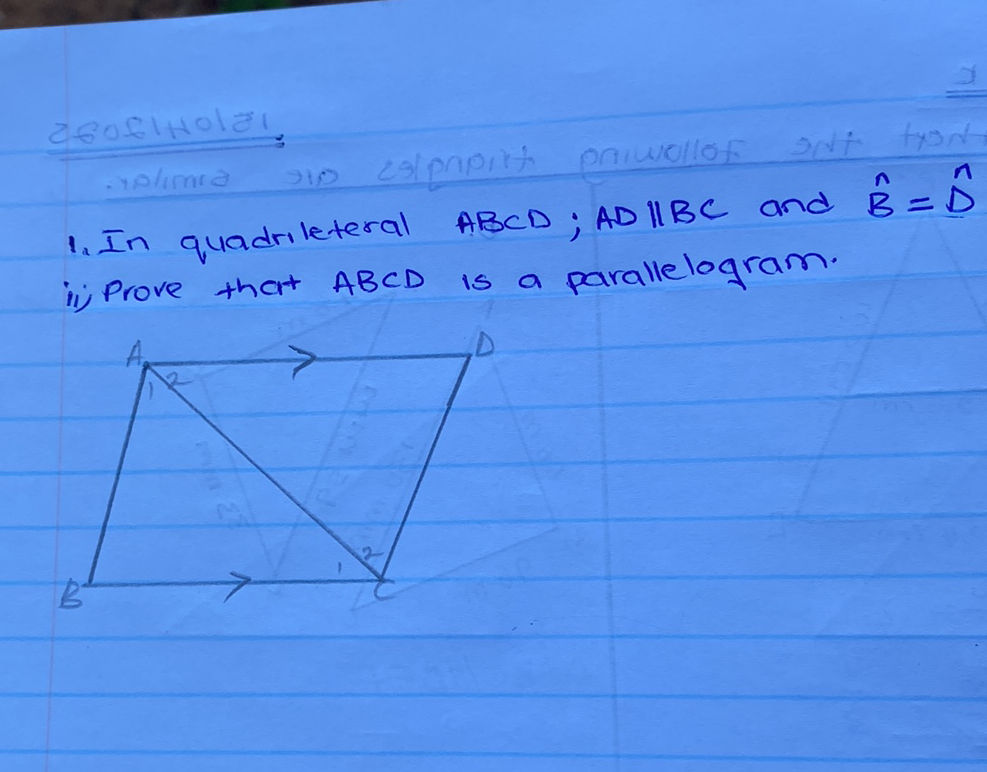 1. In quadrileteral ABCD ; AD ∥ BC and B̂ = D̂
ii) Prove that ABCD is a parallelogram.
A D
1 2
2
1
B C